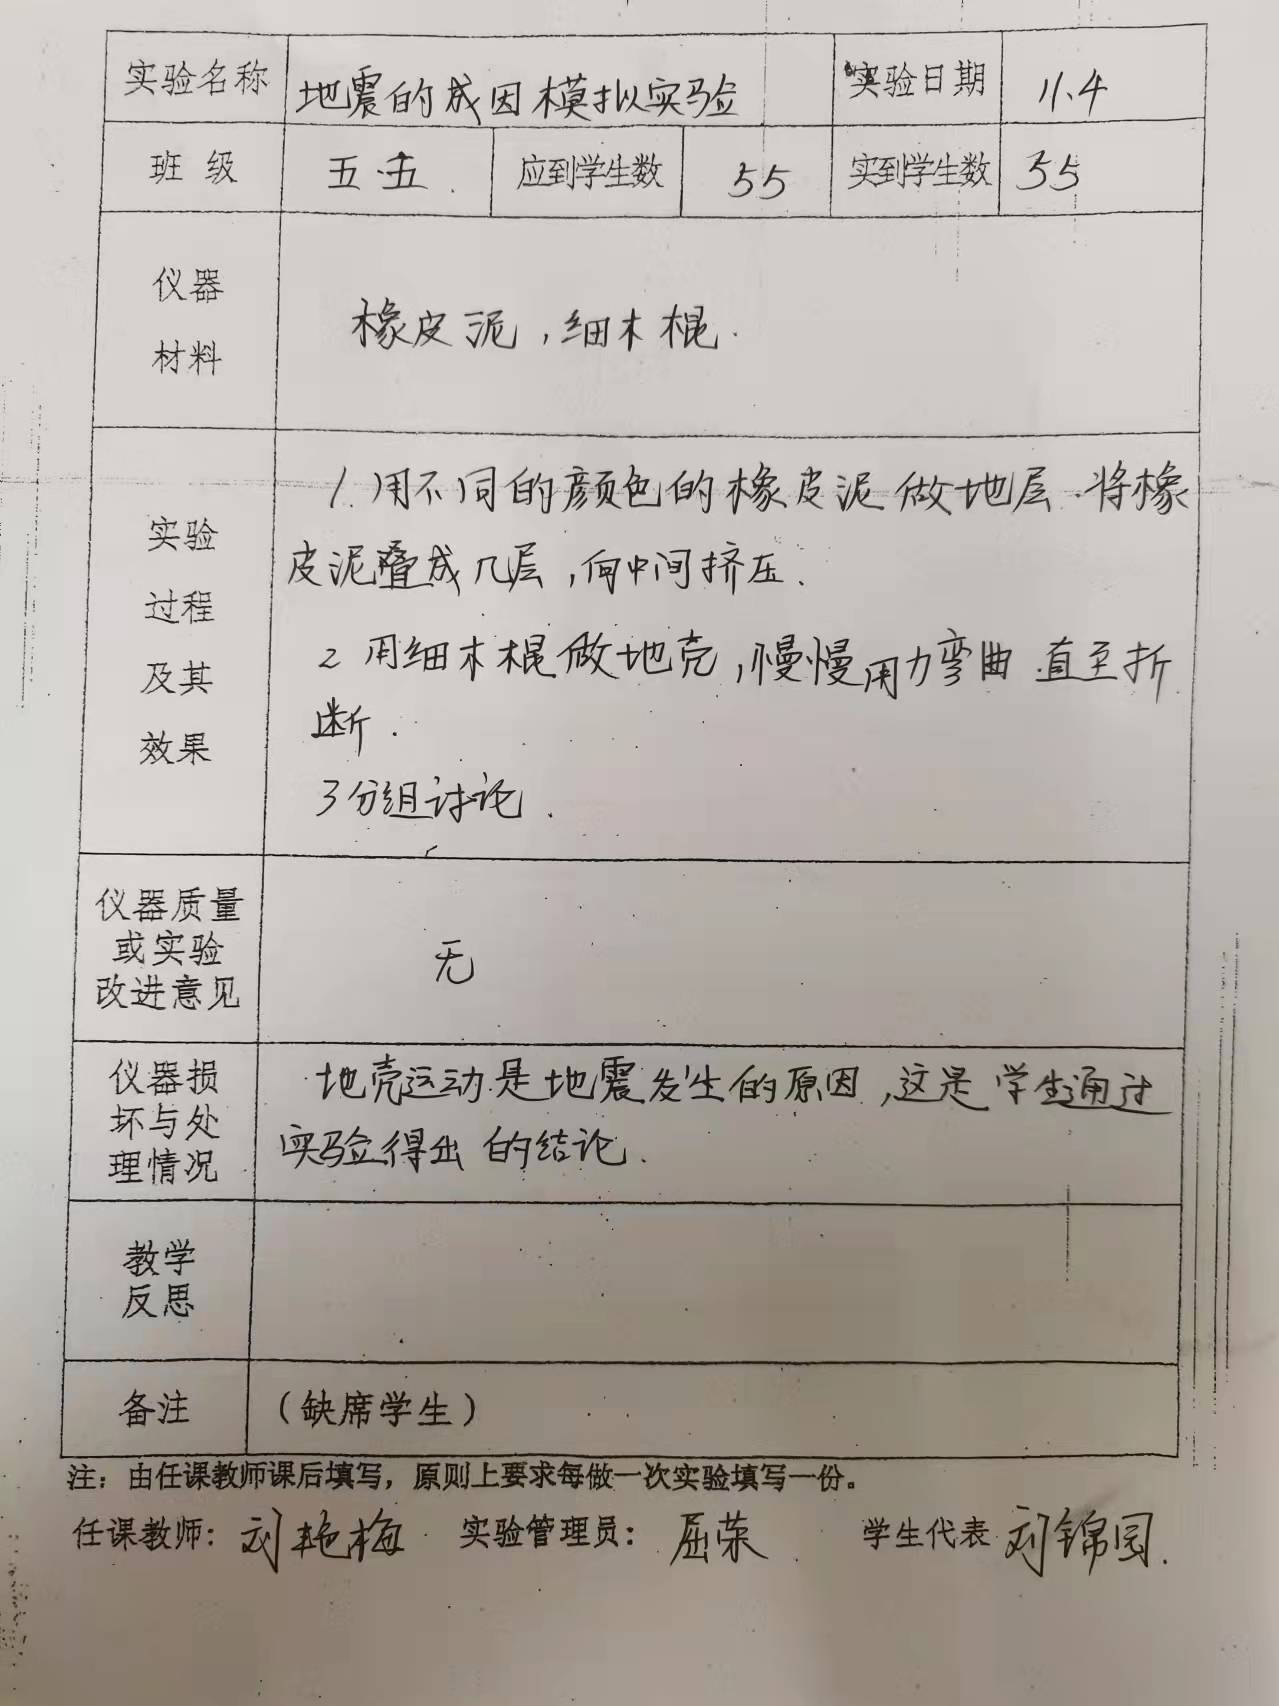 实验名称 地震的成因模拟实验 实验日期 11.4
班 级 五.五. 应到学生数 55 实到学生数 55
仪器
材料
橡皮泥,细木棍.
实验
过程
及其
效果
1.用不同的颜色的橡皮泥做地层.将橡
皮泥叠成几层,向中间挤压.
2 用细木棍做地壳,慢慢用力弯曲 直至折
断.
3 分组讨论.
仪器质量
或实验
改进意见
无
仪器损
坏与处
理情况
地壳运动是地震发生的原因,这是学生通过
实验得出的结论.
教学
反思
备注 (缺席学生)
注：由任课教师课后填写，原则上要求每做一次实验填写一份。
任课教师：刘艳梅 实验管理员：屈荣 学生代表 刘锦园.